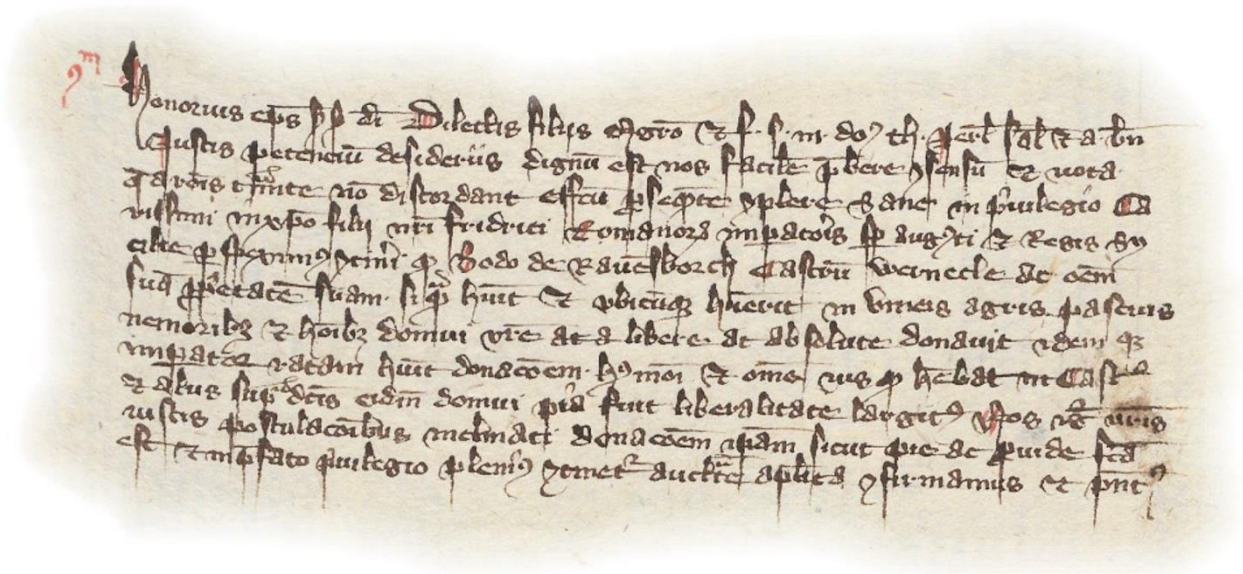 Honorius eps s s di Dilectis filiis Mgro et f. s. m. do. th. Jerl sal et a bn
Iustis petenciu desideriis dignu est nos facilem pbere ꝯsensu et vota
que a rois tmite no discordant effcu ꝓseqnte ꝯplere Sane in puilegio Ca
rissimi in xpo filii nri Fridrici Romanorꝝ impatoris sp augꝰti et Regis Sy
cilie ꝓspeximꝰ ꝯtineri ꝙ Bodo de Rauensborch Castru wernecle ac oem
sua ꝓpietate suam siqua huit et vbicuqꝫ huerit in vineis agris pascuis
nemoribꝫ et hoibꝫ domui vre Acca libere ac absolute donauit idem qꝫ
impator ratam huit donacoem hꝰmoi et ome ius ꝙ hebat in Castro
et aliis supdcis eidem domui pia fuit liberalitate largitꝰ Nos igr vris
iustis postulacoibus inclinati donacoem ipam sicut pie ac ꝓuide fca
est et in pfato puilegio pleniꝰ ꝯtinet auctte aplica ꝯfirmamus et pntꝭ